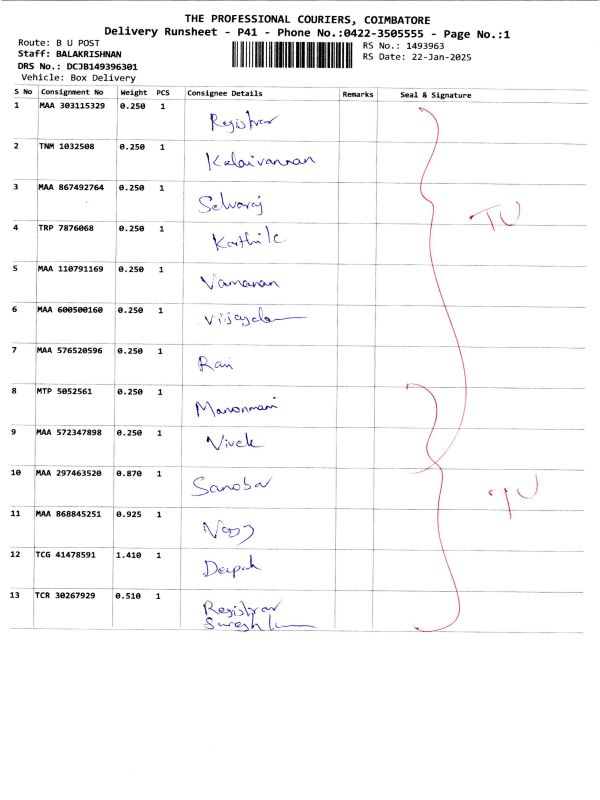 THE PROFESSIONAL COURIERS, COIMBATORE
Delivery Runsheet - P41 - Phone No.:0422-3505555 - Page No.:1
Route: B U POST
RS No.: 1493963
Staff: BALAKRISHNAN
RS Date: 22-Jan-2025
DRS No.: DCJB149396301
Vehicle: Box Delivery
S No Consignment No Weight PCS Consignee Details Remarks Seal & Signature
1 MAA 303115329 0.250 1 Registrar
2 TNM 1032508 0.250 1 Kalaivannan
3 MAA 867492764 0.250 1 Selvaraj
4 TRP 7876068 0.250 1 Karthik
5 MAA 110791169 0.250 1 Vamanan
6 MAA 600500160 0.250 1
7 MAA 576520596 0.250 1
8 MTP 5052561 0.250 1 Manonmani
9 MAA 572347898 0.250 1 Vivek
10 MAA 297463520 0.870 1 Sanoba
11 MAA 868845251 0.925 1
12 TCG 41478591 1.410 1 Deepak
13 TCR 30267929 0.510 1 Registrar